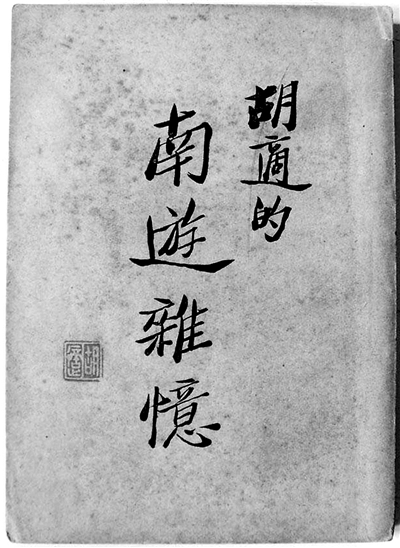 胡適的
南遊雜憶
胡適